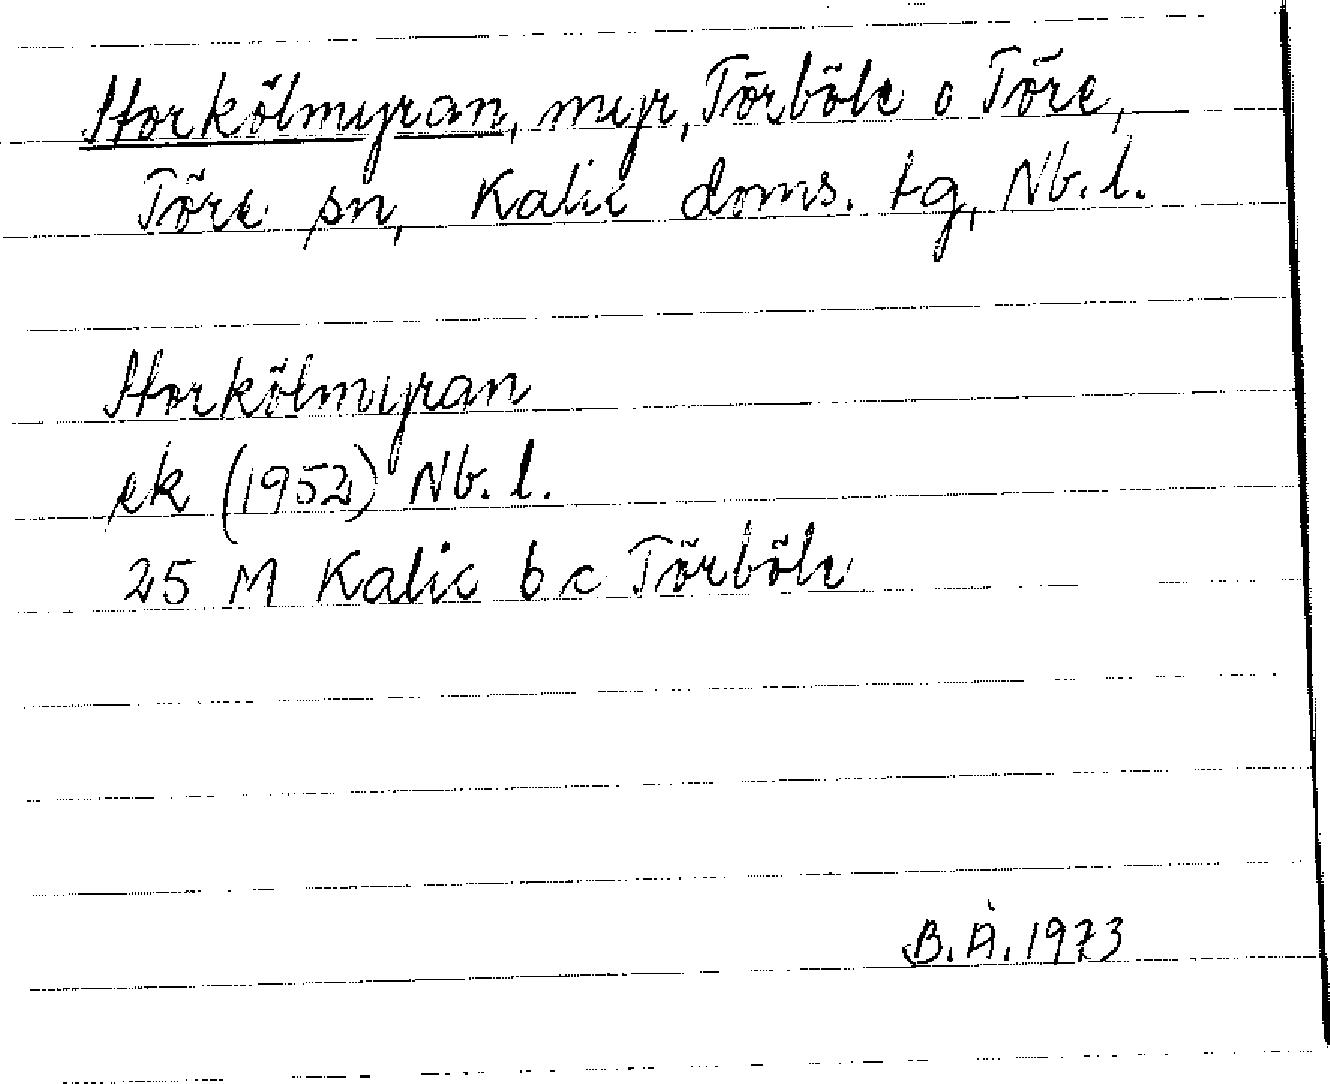 Storkölmyran, myr, Törböle o Töre,
Töre sn, Kalix doms. tg, Nb. l.
Storkölmyran
ek (1952) Nb. l.
25 M Kalix b c Törböle
B. Å. 1973